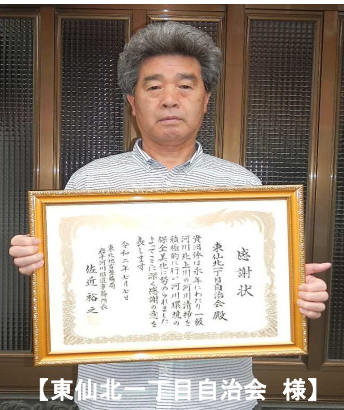 感謝状
東仙北一丁目自治会殿
貴団体は永年にわたり一級
河川北上川の河川清掃を
積極的に行い河川環境の
保全美化に努められました
よってここに深く感謝の意を
表します
令和二年七月七日
東北地方整備局
岩手河川国道事務所長
佐近裕之
【東仙北一丁目自治会 様】